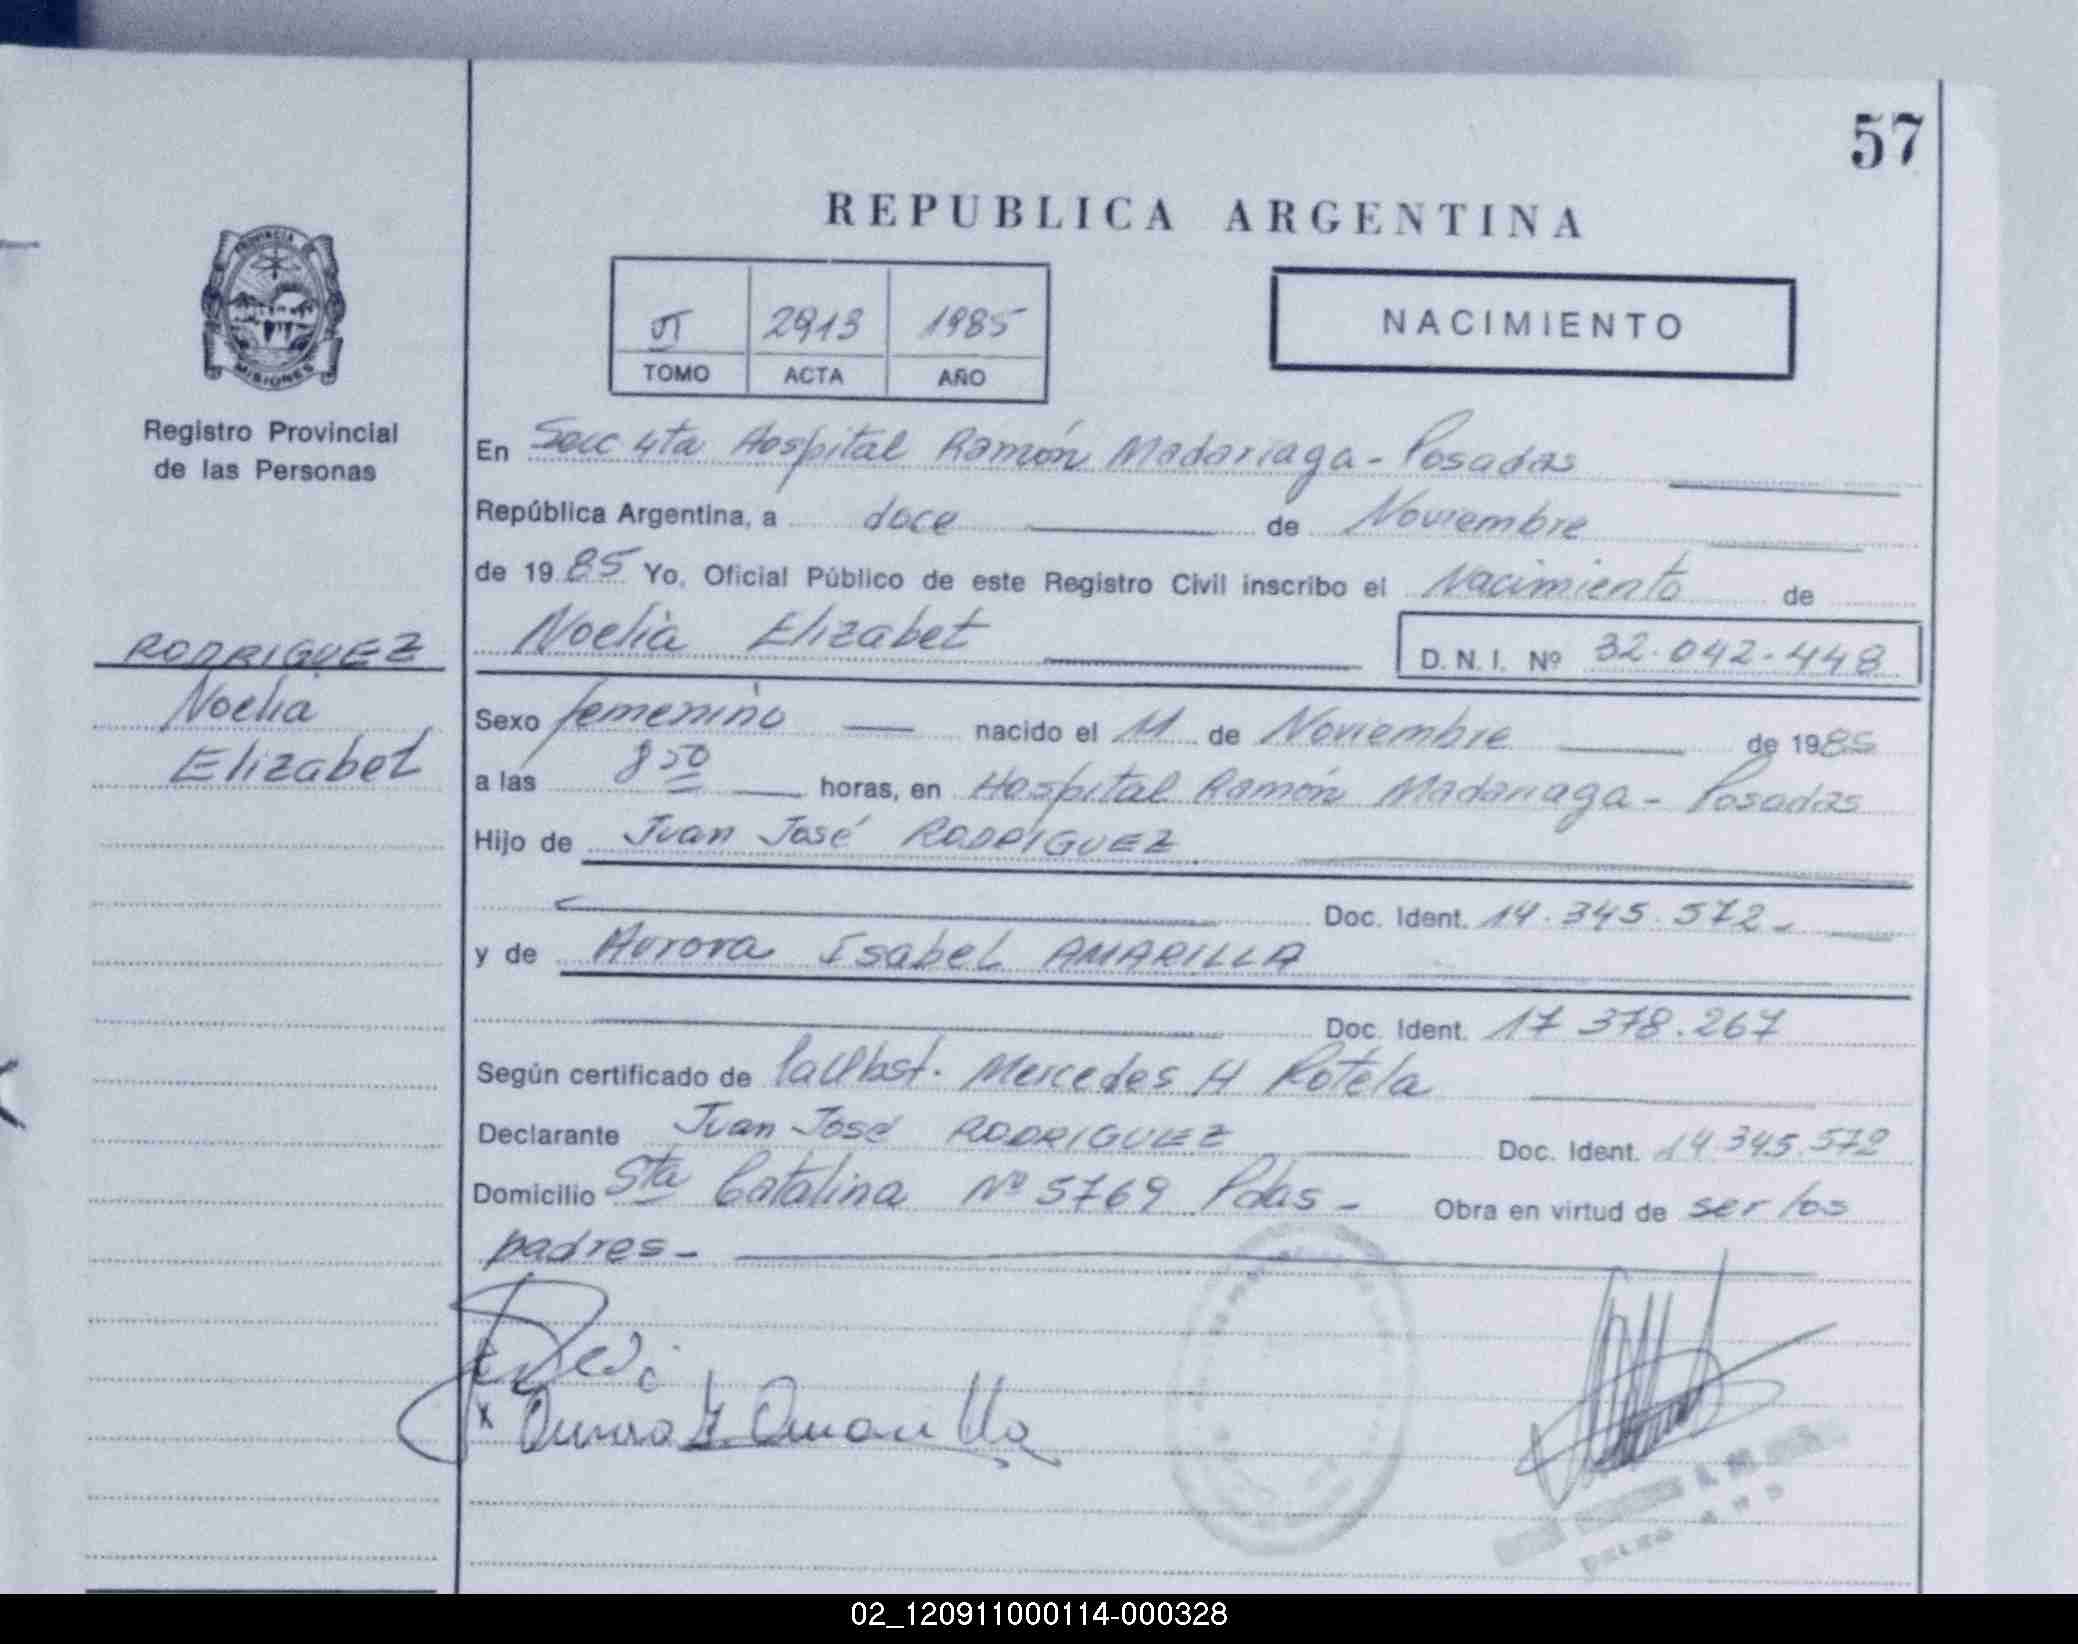 57
REPUBLICA ARGENTINA
PROVINCIA
MISIONES
2913 1985
TOMO ACTA AÑO
NACIMIENTO
Registro Provincial
de las Personas
En Secc 4ta Hospital Ramón Madariaga - Posadas
República Argentina, a doce de Noviembre
de 1985 Yo, Oficial Público de este Registro Civil inscribo el Nacimiento de
Noelia Elizabet D.N.I. Nº 32.042.448
RODRIGUEZ
Noelia
Elizabet
Sexo femenino nacido el 11 de Noviembre de 1985
a las 8 50 horas, en Hospital Ramón Madariaga - Posadas
Hijo de Juan José RODRIGUEZ
Doc. Ident. 14.345.572-
y de Aurora Isabel AMARILLA
Doc. Ident. 17 378.267
Según certificado de Mercedes H Rotela
Declarante Juan José RODRIGUEZ Doc. Ident. 14.345.572
Domicilio Sta Catalina Nº 5769 Pdas - Obra en virtud de ser los
padres -
x Aurora I. Amarilla
02_120911000114-000328